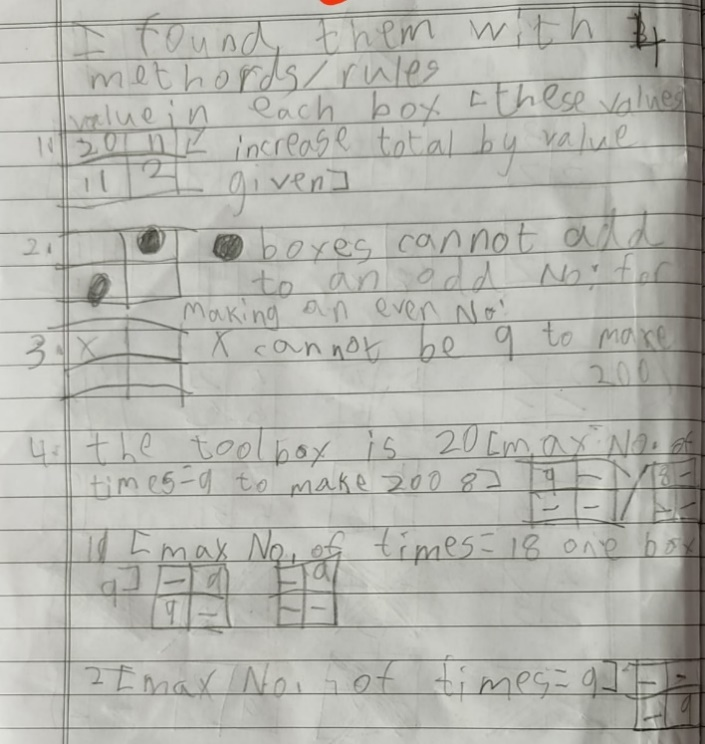 I found them with 4
methords/rules
value in each box [these values
1. 20 11 increase total by value
11 2 given]
2. boxes cannot add
to an odd No: for
making an even No:
3. X X cannot be 9 to make
200
4. the toolbox is 20[max No. of
times=9 to make 200 8] 9 - / 8 -
- - - -
11 [max No. of times=18 one box
9] - 9 - 9
9 - - -
2[max No. of times=9] - -
- 9